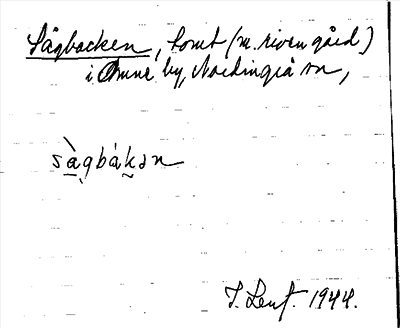 Sågbacken, tomt (m. riven gård)
i Omne by, Nordingrå sn,
sàgbákən
1944.